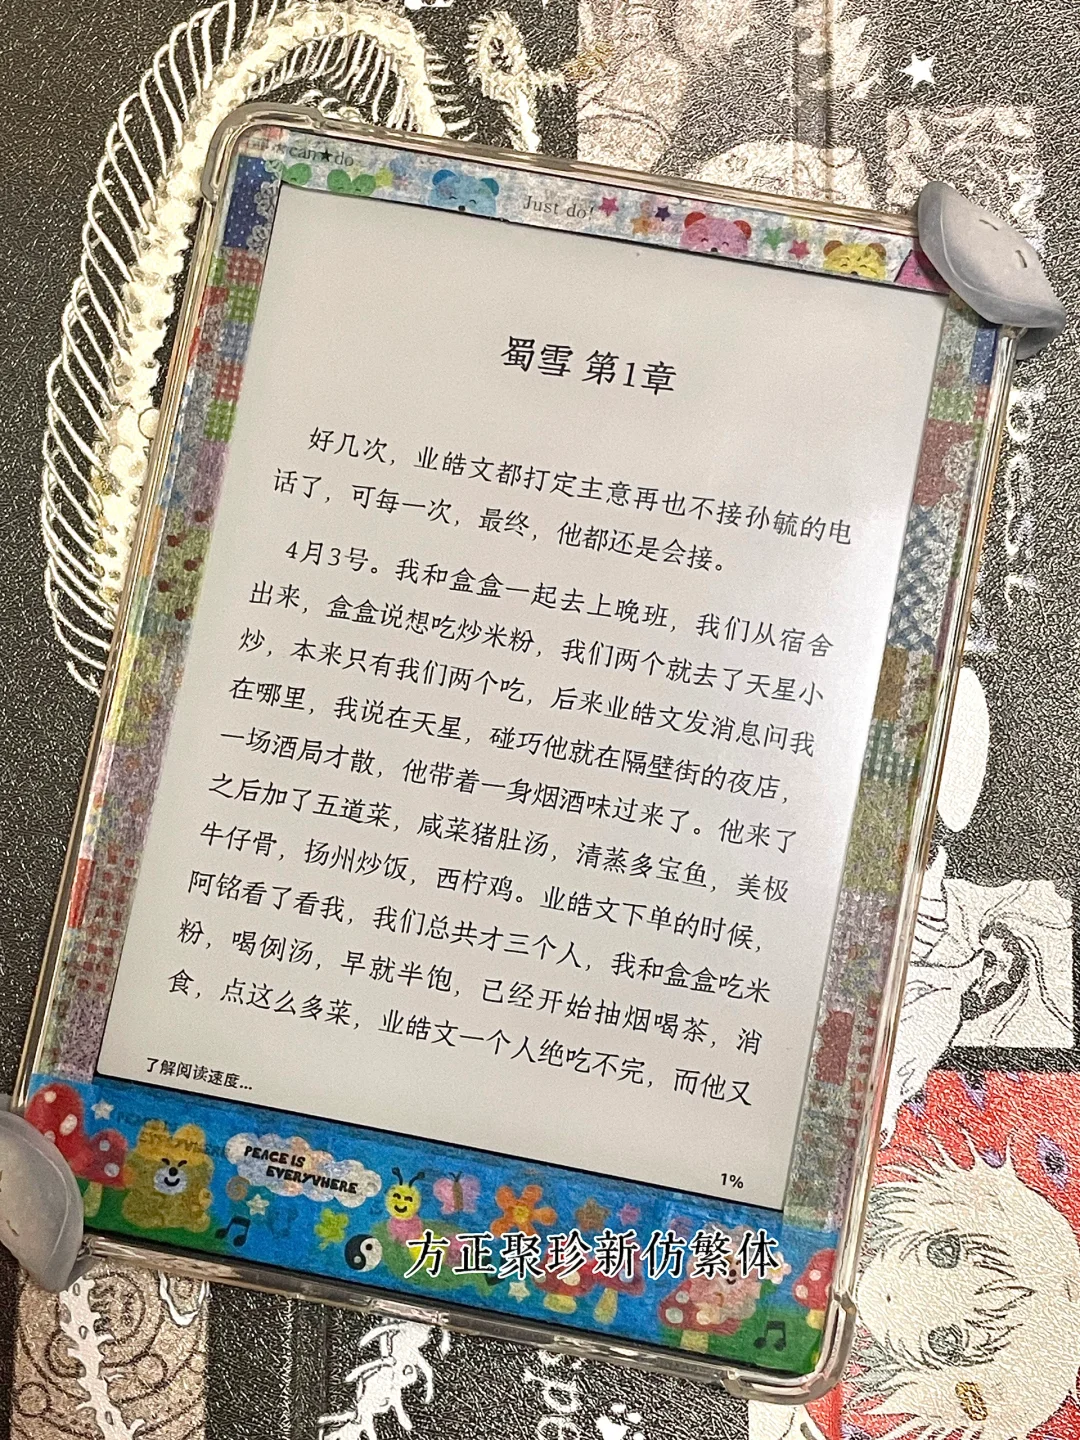 can★do
Just do!
蜀雪 第1章
好几次，业皓文都打定主意再也不接孙毓的电
话了，可每一次，最终，他都还是会接。
4月3号。我和盒盒一起去上晚班，我们从宿舍
出来，盒盒说想吃炒米粉，我们两个就去了天星小
炒，本来只有我们两个吃，后来业皓文发消息问我
在哪里，我说在天星，碰巧他就在隔壁街的夜店，
一场酒局才散，他带着一身烟酒味过来了。他来了
之后加了五道菜，咸菜猪肚汤，清蒸多宝鱼，美极
牛仔骨，扬州炒饭，西柠鸡。业皓文下单的时候，
阿铭看了看我，我们总共才三个人，我和盒盒吃米
粉，喝例汤，早就半饱，已经开始抽烟喝茶，消
食，点这么多菜，业皓文一个人绝吃不完，而他又
了解阅读速度...
1%
PEACE IS
EVERYVHERE
方正聚珍新仿繁体